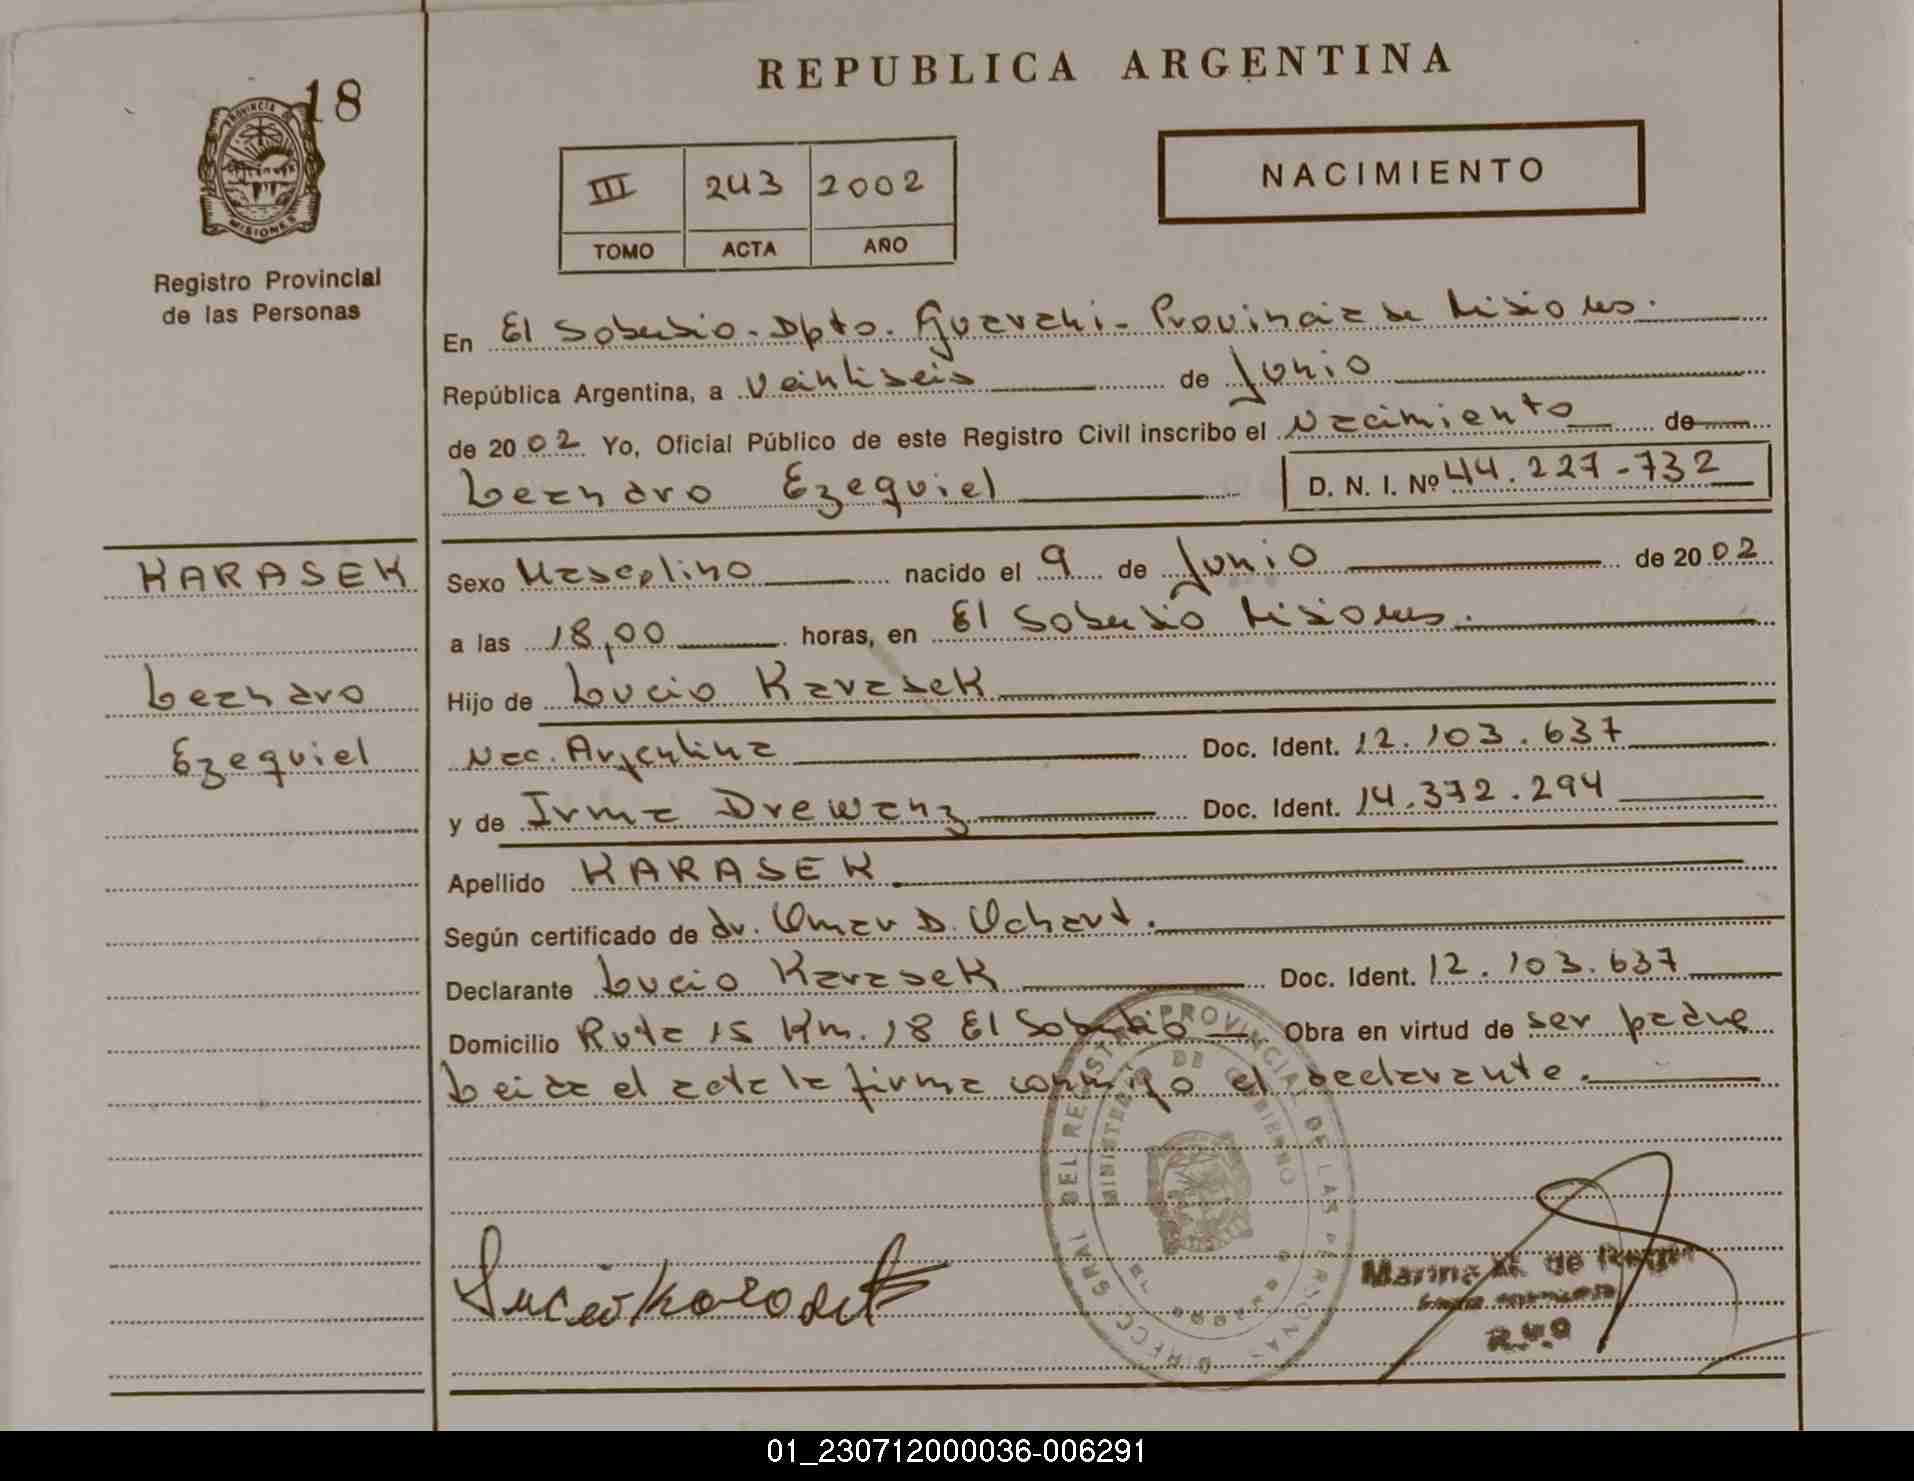 18
PROVINCIA DE
MISIONES
Registro Provincial
de las Personas
REPUBLICA ARGENTINA
III 243 2002
TOMO ACTA AÑO
NACIMIENTO
En El Soberbio - Dpto. Guarani - Provincia de Misiones.
República Argentina, a Veintiseis de Junio
de 2002 Yo, Oficial Público de este Registro Civil inscribo el Nacimiento de
Leandro Ezequiel D. N. I. Nº 44.227-732
KARASEK
Leandro
Ezequiel
Sexo Masculino nacido el 9 de Junio de 2002
a las 18,00 horas, en El Soberbio Misiones.
Hijo de Lucio Karasek
Nac. Argentina Doc. Ident. 12.103.637
y de Irma Drewanz Doc. Ident. 14.372.294
Apellido KARASEK
Según certificado de dr. Omar D. Ochart.
Declarante Lucio Karasek Doc. Ident. 12.103.637
Domicilio Ruta 15 Km. 18 El Soberbio Obra en virtud de ser padre
Leida el acta la firma conmigo el declarante.
DIRECC GRAL DEL REGISTRO PROVINCIAL DE LAS PERSONAS
MINISTERIO DE GOBIERNO
Lucio Karasek
Marina de
01_230712000036-006291